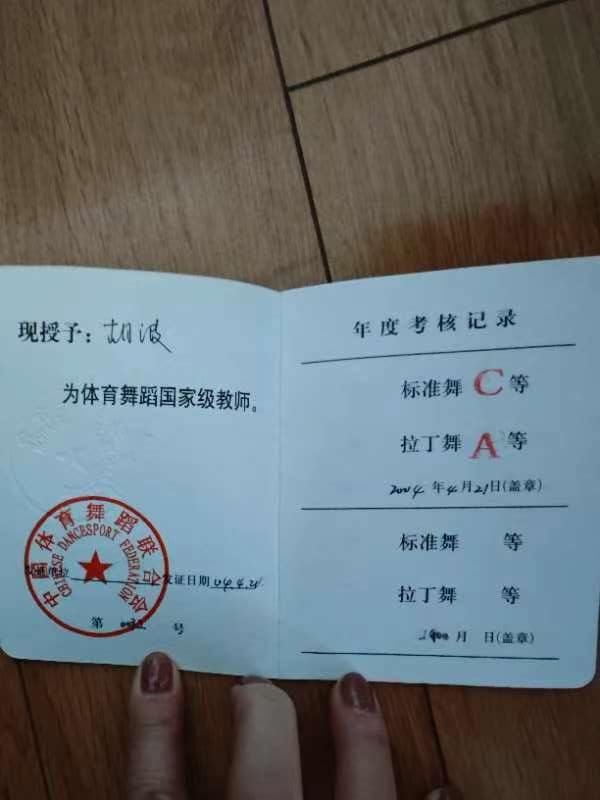 现授予：胡波
为体育舞蹈国家级教师。
中国体育舞蹈联合会
CHINESE DANCESPORT FEDERATION
单位
发证日期 04.4.21
第
号
年度考核记录
标准舞 C 等
拉丁舞 A 等
2004 年 4 月 21 日(盖章)
标准舞 等
拉丁舞 等
月 日(盖章)